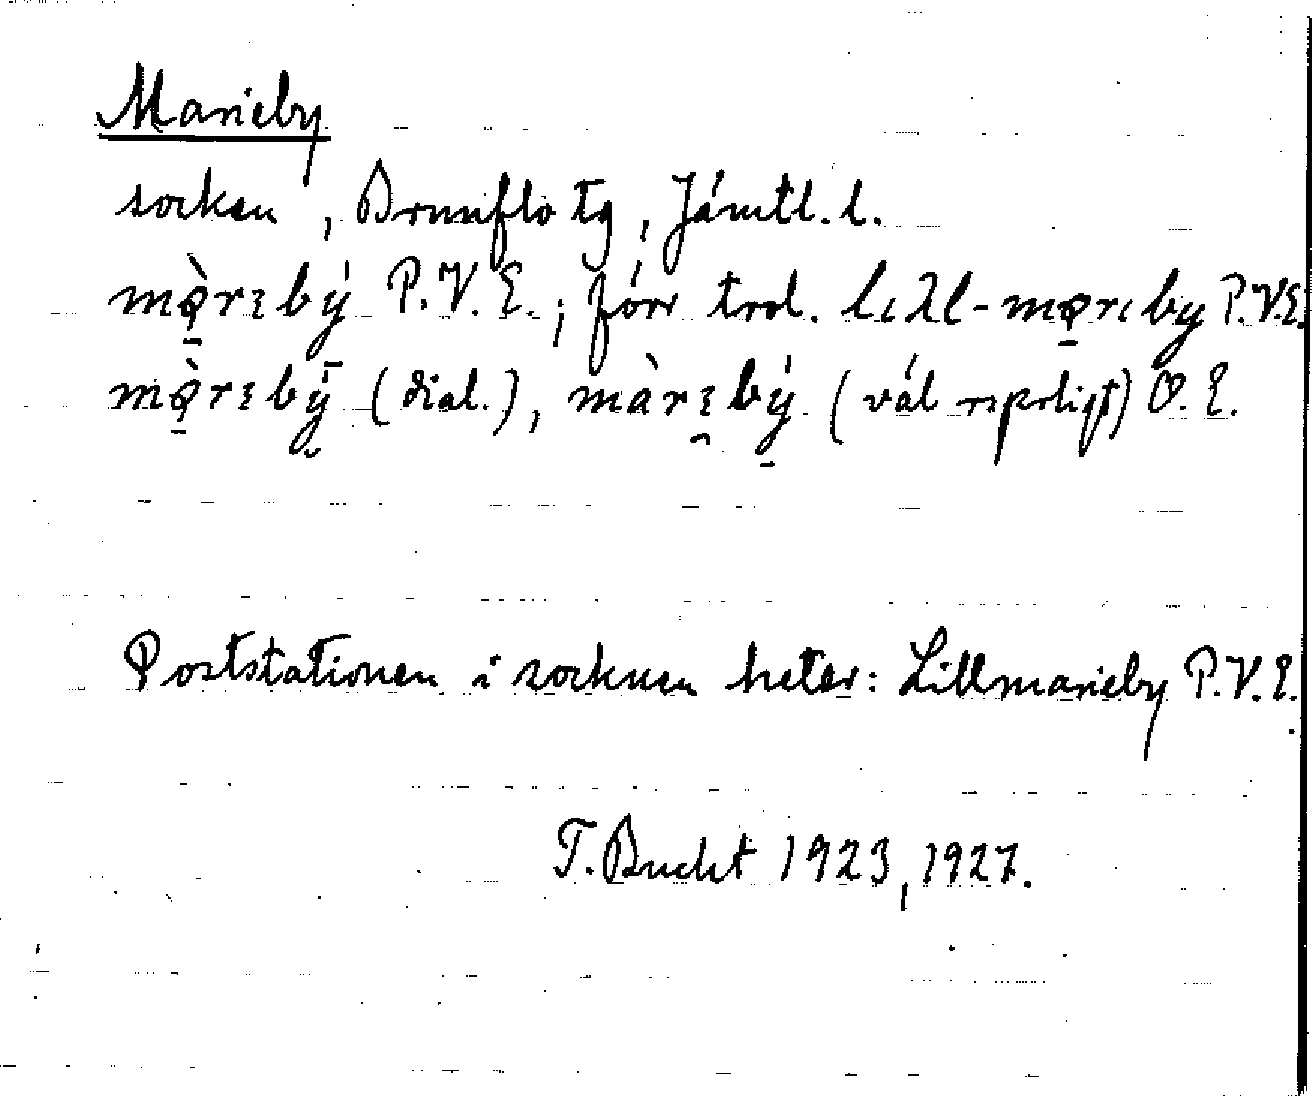 Marieby
socken, Brunflo tg, Jämtl. l.
mǫ̀rɛbý P.V.E.; förr trol. lɩll-mǫrɩby P.V.E.
mǫ̀rɛbý (dial.), màrɛbý (väl uppsligt) O.E.
Poststationen i socknen heter: Lillmarieby P.V.E.
T. Bucht 1923, 1927.